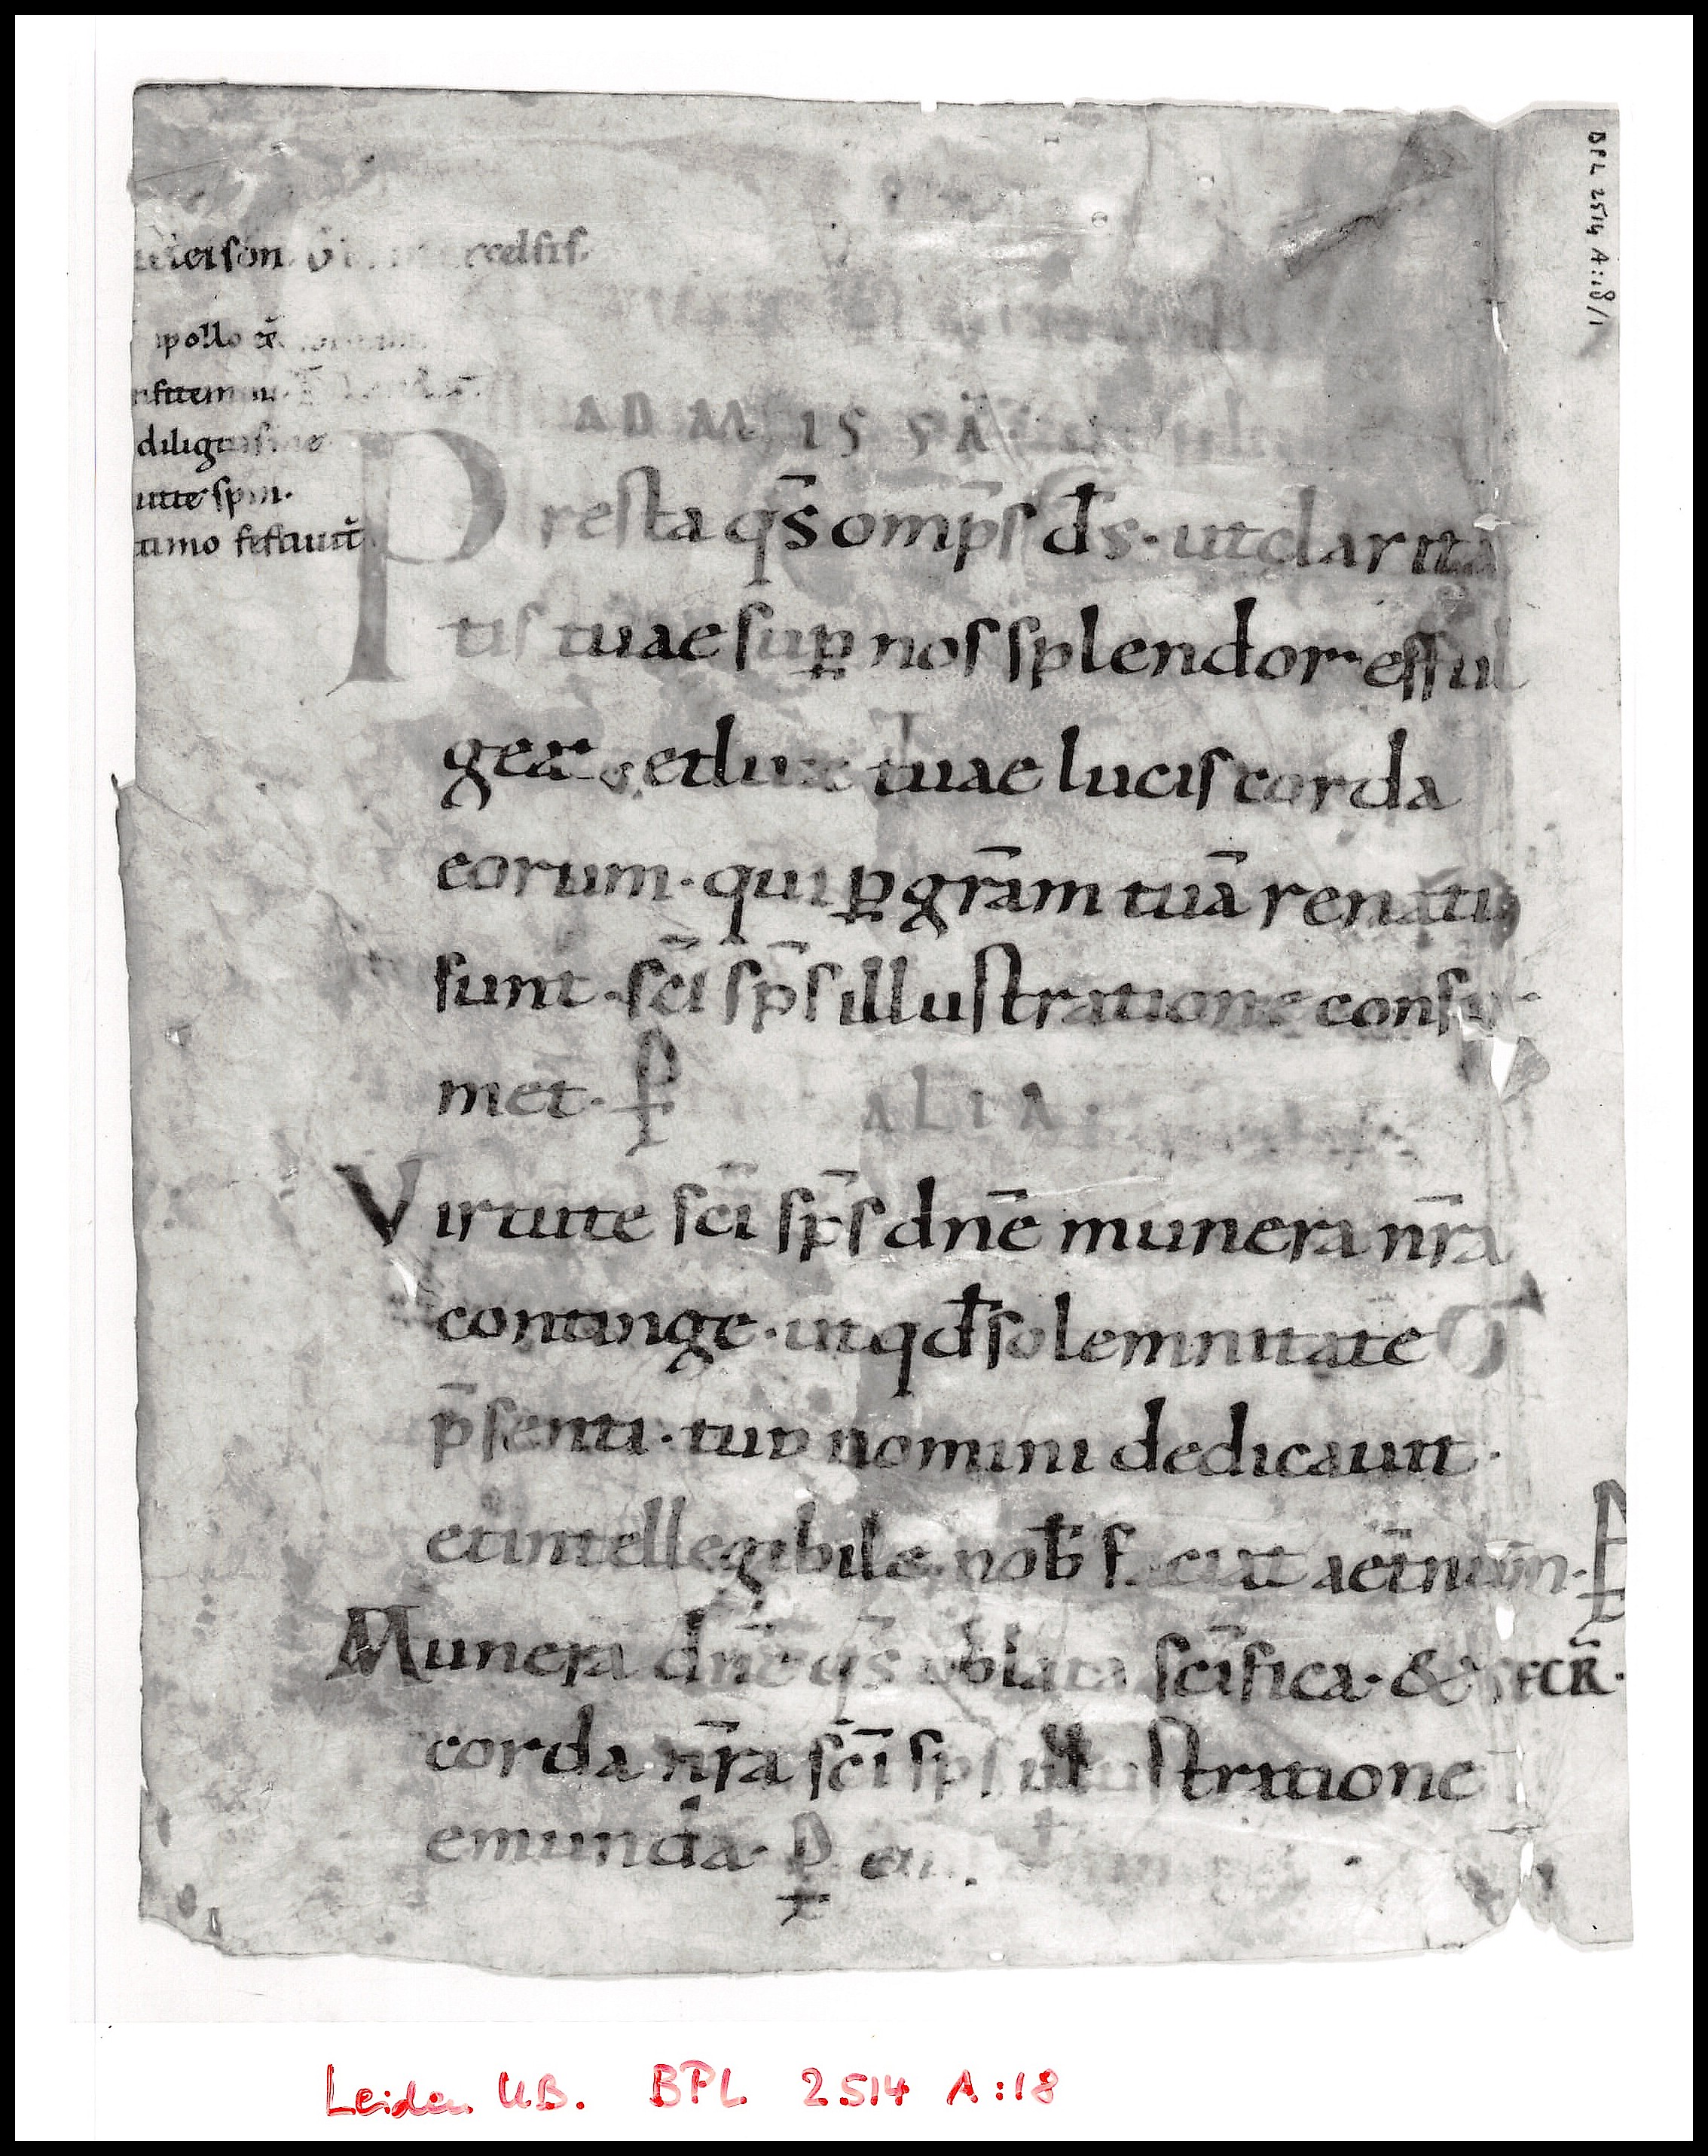 BPL 2514 A:18/1
diligitis me
AD MISSÃ
Presta qs̄ omp̄s ds̄· ut clarita
tis tuae sup̱ nos splendor efful
geat· et lux tuae lucis corda
eorum· qui p̱ grām tuā renati
sunt· sc̄i sp̄s illustratione confir
met· P̱
ALIA·
Virtute sc̄i sp̄s dnē munera nr̄a
continge· ut qđ solemnitate
p̄senti· tuo nomini dedicauit·
et intellegibile nob̄ faciat aet̄num· P̱
Munera dnē qs̄ oblata sc̄ifica· & SECR̄·
corda nr̄a sc̄i sp̄s illustratione
emunda· P̱
Leiden UB. BPL 2514 A:18